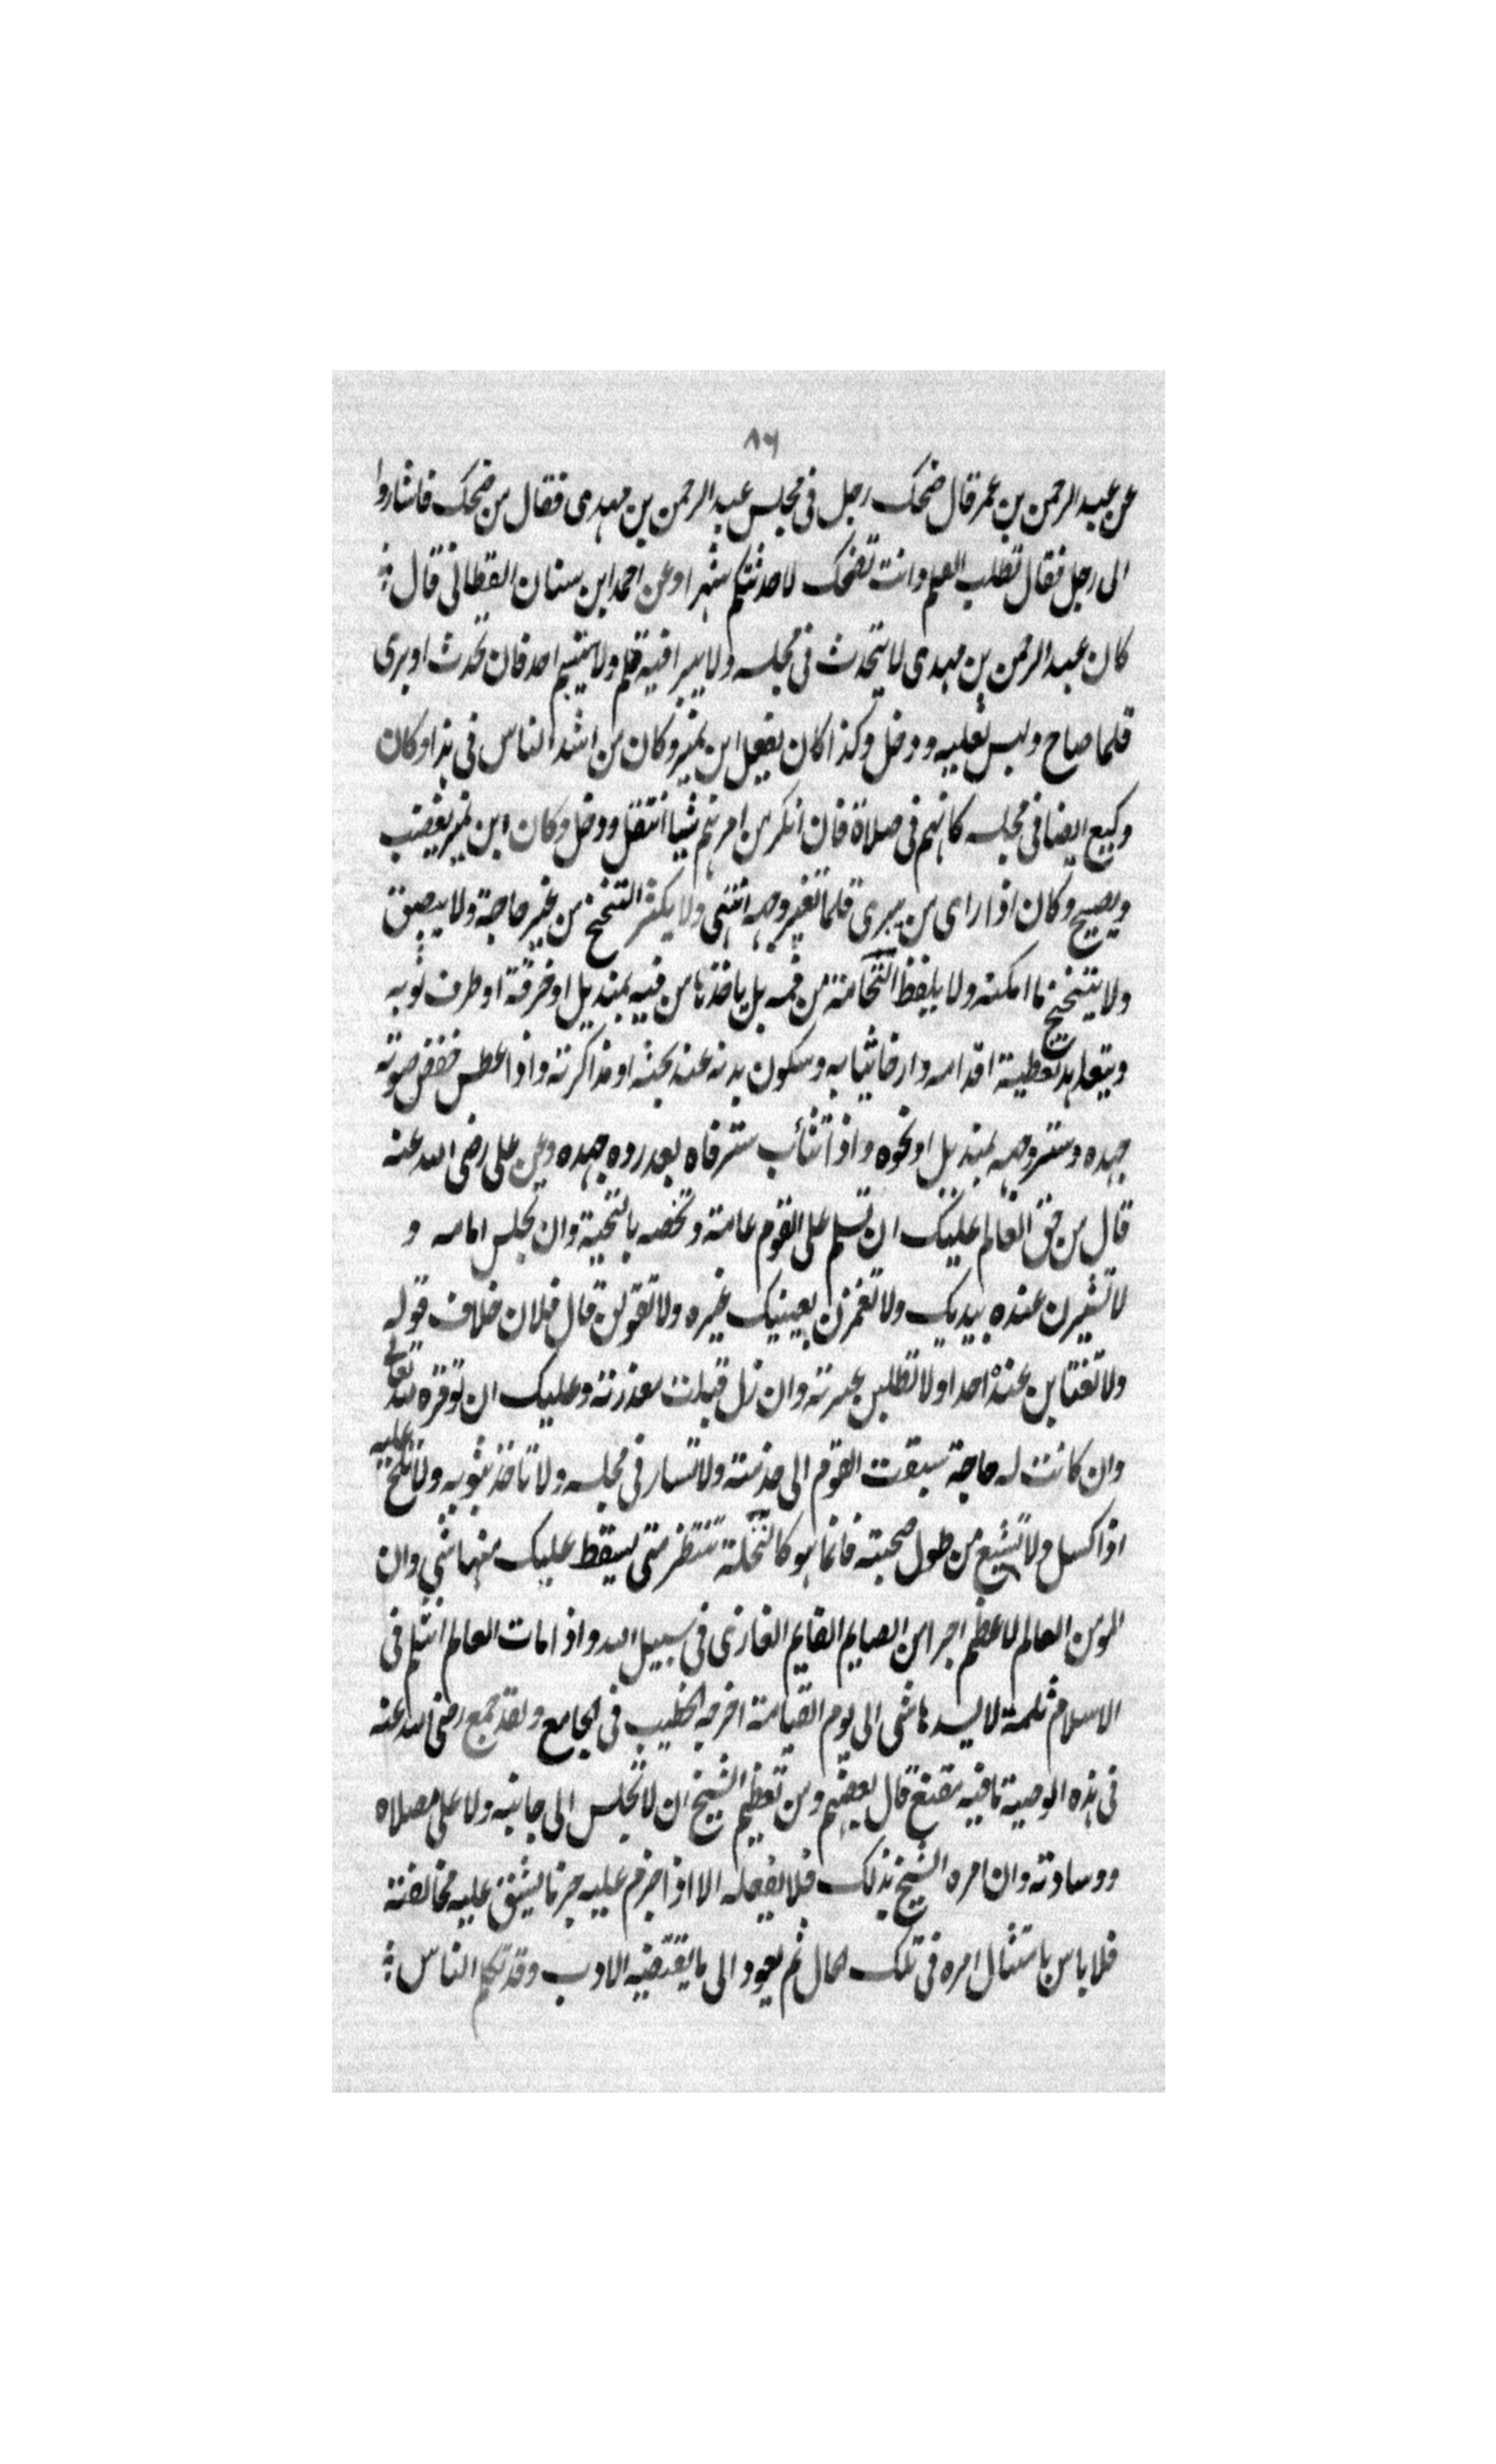 ٨٦
عن عبد الرحمن بن عمر قال ضحك رجل فى مجلس عبد الرحمن بن مهدى فقال من ضحك فاشاروا
الى رجل فقال تطلب العلم وانت تضحك لا حدثتكم شهرا وعن احمد ابن سنان القطانى قال
كان عبد الرحمن بن مهدى لا يتحدث فى مجلسه ولا يبرا فيه قلم ولا يتبسم احد فان تحدث او برى
قلما صاح ولبس نعليه ودخل وكذا كان يفعل ابن نمير وكان من اشد الناس فى هذا وكان
وكيع ايضا فى مجلسه كانهم فى صلاة فان انكر من امرهم شيا انتقل ودخل وكان ابن نمير يغضب
ويصيح وكان اذا راى من يبرى قلما تغير وجهه انتهى ولا يكثر التنحنح من غير حاجة ولا يبصق
ولا يتنخع ما امكنه ولا يلفظ النخامة من فمه بل ياخذها من فيه بمنديل او خرقة او طرف ثوبه
ويتعاهد تغطية اقدامه وارخا ثيابه وسكون بدنه عند بحثه او مذاكرته واذا عطس خفض صوته
جهده وستر وجهه بمنديل او نحوه واذا تثائب ستر فاه بعد رده جهده وعن على رضى الله عنه
قال من حق العالم عليك ان تسلم على القوم عامة وتخصه بالتحية وان تجلس امامه و
لا تشيرن عنده بيديك ولا تغمزن بعينيك غيره ولا تقولن قال فلان خلاف قوله
ولا تغتابن عنده احدا ولا تطلبن عسرته وان زل قبلت معذرته وعليك ان توقره لله تعالى
وان كانت له حاجة سبقت القوم الى خدمته ولا تسار فى مجلسه ولا تاخذ بثوبه ولا تلح عليه
اذا كسل ولا تشبع من طول صحبته فانما هو كالنخلة تنتظر متى يسقط عليك منها شى وان
المومن العالم لاعظم اجرا من الصايم القايم الغازى فى سبيل الله واذا مات العالم انثلم فى
الاسلام ثلمة لا يسدها شى الى يوم القيامة اخرجه الخطيب فى الجامع ولقد جمع رضى الله عنه
فى هذه الوصية ما فيه مقنع قال بعضهم ومن تعظيم الشيخ ان لا تجلس الى جانبه ولا على مصلاه
ووسادته وان امره الشيخ بذلك فلا يفعله الا اذا جزم عليه جزما يشق عليه مخالفته
فلا باس بامتثال امره فى تلك الحال ثم يعود الى ما يقتضيه الادب وقد تكلم الناس